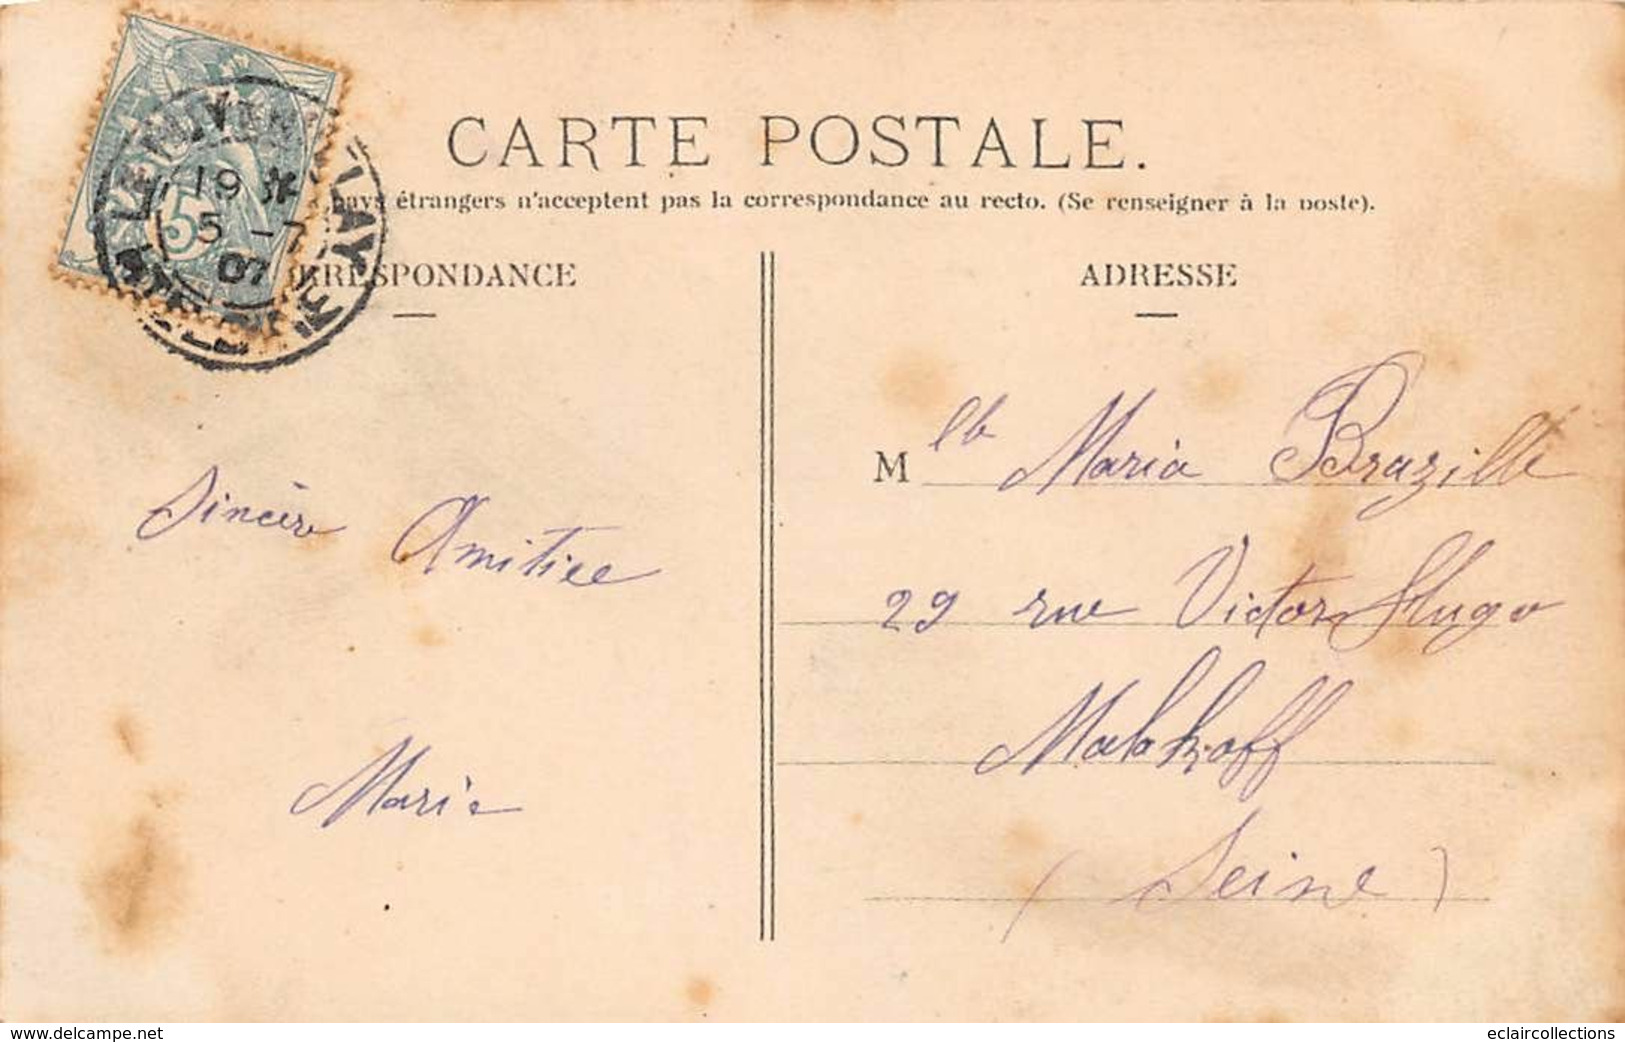 CARTE POSTALE.
pays étrangers n'acceptent pas la correspondance au recto. (Se renseigner à la poste).
RRESPONDANCE
ADRESSE
19 *
5 -7
07
5
Mlle Maria Brazille
29 rue Victor Hugo
Malakoff
(Seine)
Sincère Amitiee
Marie
www.delcampe.net
eclaircollections